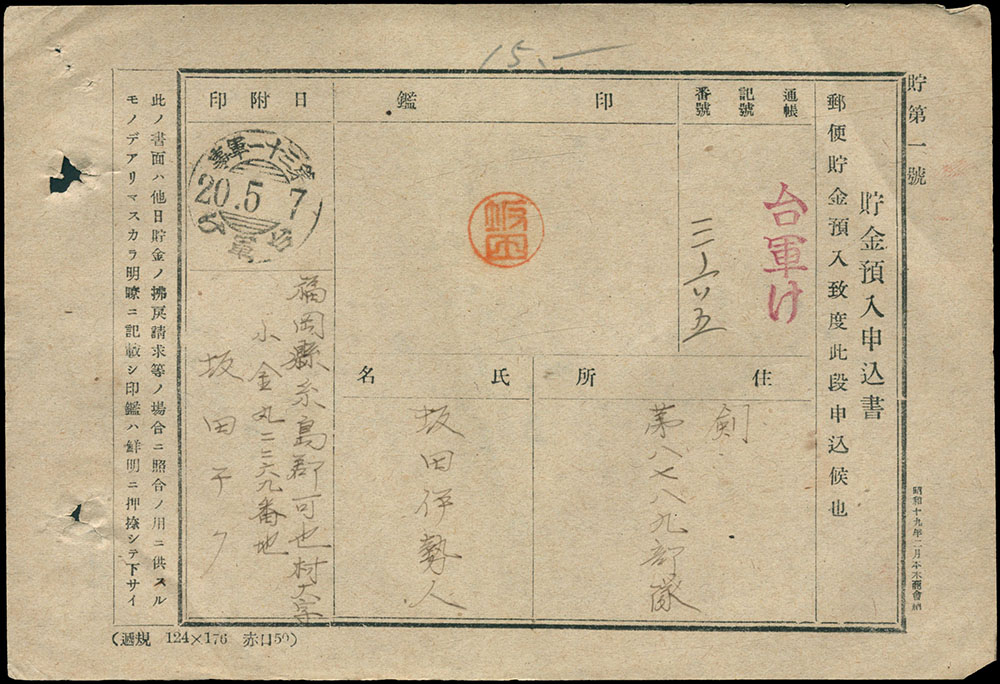 15.—
貯第一號
貯金預入申込書
郵便貯金預入致度此段申込候也
昭和十九年二月
通帳
記號
番號
台軍け
印鑑
坂田
日附印
20.5.7
住所
剣
第八七八九部隊
氏名
坂田伊勢人
福岡縣糸島郡可也村大字
小金丸二二六九番地
坂田
此ノ書面ハ他日貯金ノ拂戻請求等ノ場合ニ照合ノ用ニ供スル
モノデアリマスカラ明瞭ニ記載シ印鑑ハ鮮明ニ押捺シテ下サイ
(遞規 124×176 赤口50)